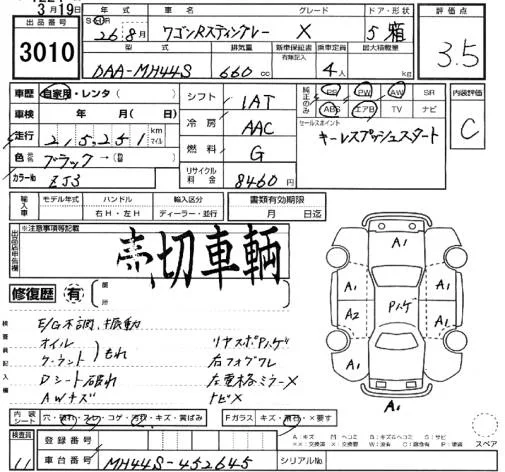 3月19日
出品番号
3010
年式 車名 グレード ドア・形状
26年8月 ワゴンRスティングレー X 5 箱
型式 排気量 新車保証書 乗車定員 最大積載量
有無記入
DAA-MH44S 660 cc 4人 kg
評価点
3.5
車歴 自家用・レンタ( )
車検 年 月( 日)
走行 215,251 km マイル
色 ブラック→(
カラーNo ZJ3
シフト 1AT
冷房 AAC
燃料 G
リサイクル料金 8460円
純正のみ
PS PW AW SR
ABS エアB TV ナビ
セールスポイント
キーレスプッシュスタート
内装評価
C
輸入車 モデル年式 ハンドル 輸入区分
右H・左H ディーラー・並行
書類有効期限
月 日迄
※注意事項等記載
売切車輌
修復歴 有
箇所
E/G不調、振動
オイル
クーラント
もれ
Dシート破れ
AWキズ
リヤスポPハゲ
右フォグワレ
左電格ミラーX
トビX
A1
A1
A1
A2
A1
A1
A1
Pハゲ
A1
内装 シート 穴・破れ・スレ・コゲ・汚れ・キズ・黄ばみ
Fガラス キズ・飛石・×要す
検査員 11
登録番号
車台番号 MH44S-452645
シリアルNo
スペア